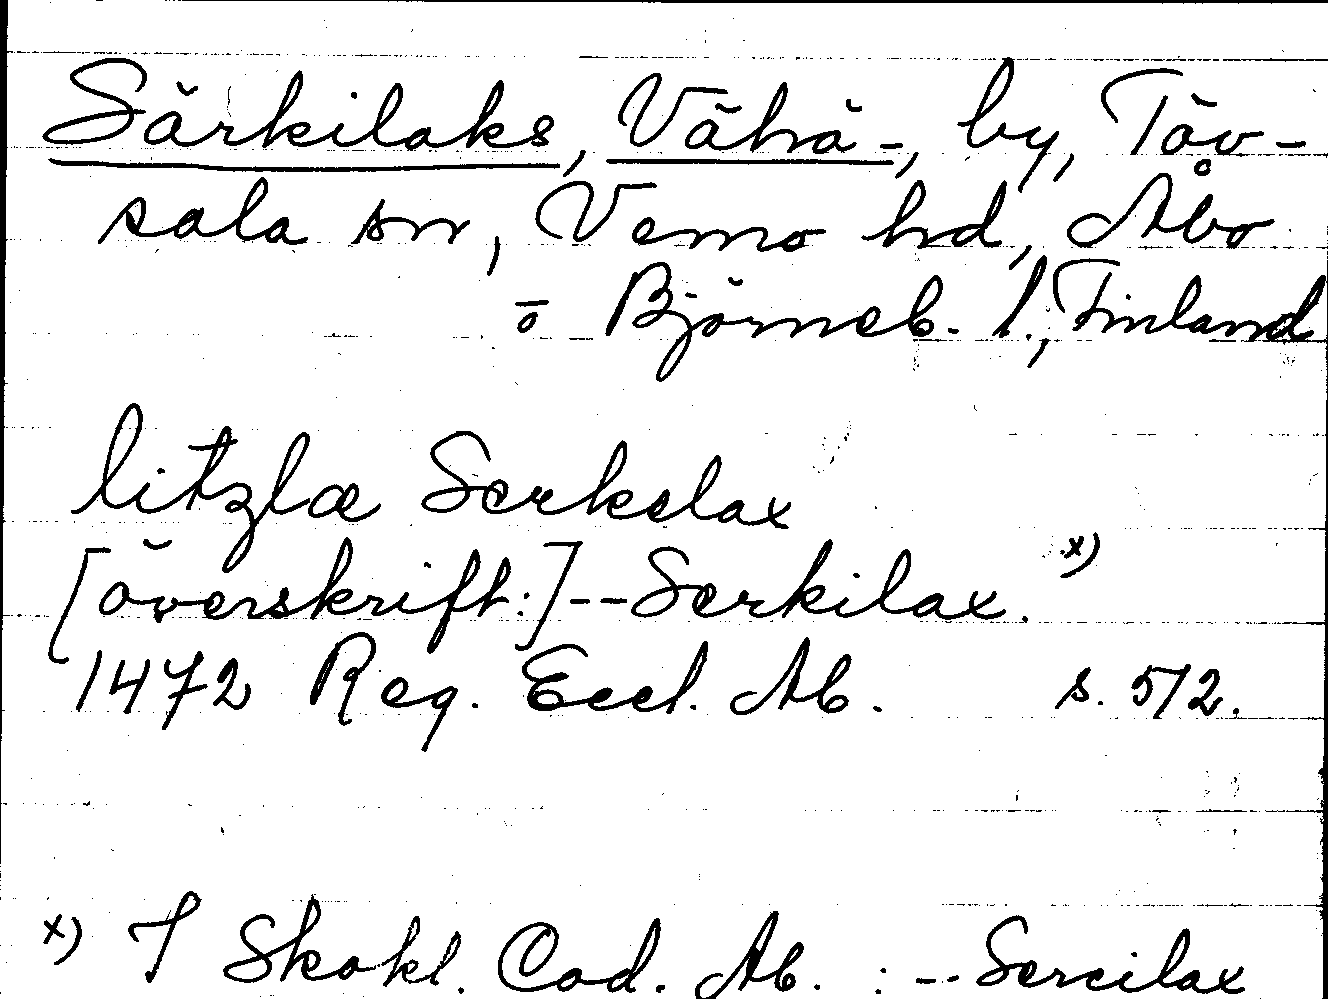 Särkilaks, Vähä-, by, Töv-
sala sn, Vemo hd, Åbo
o Björneb. l., Finland
litzlæ Serkelax
[överskrift:]--Serkilax. x)
1472 Reg. Eccl. Ab. s. 512.
x) I Skokl. Cod. Ab. : -- Sercilax